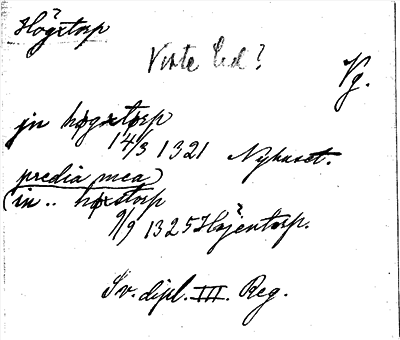 Högxtorp ?
Viste hd?
Vg.
jn høgxtørp
14/3 1321 Nyhuset.
predia mea)
(in .. høxstorp
9/9 1325 Höjentorp. ?
Sv. dipl. III. Reg.